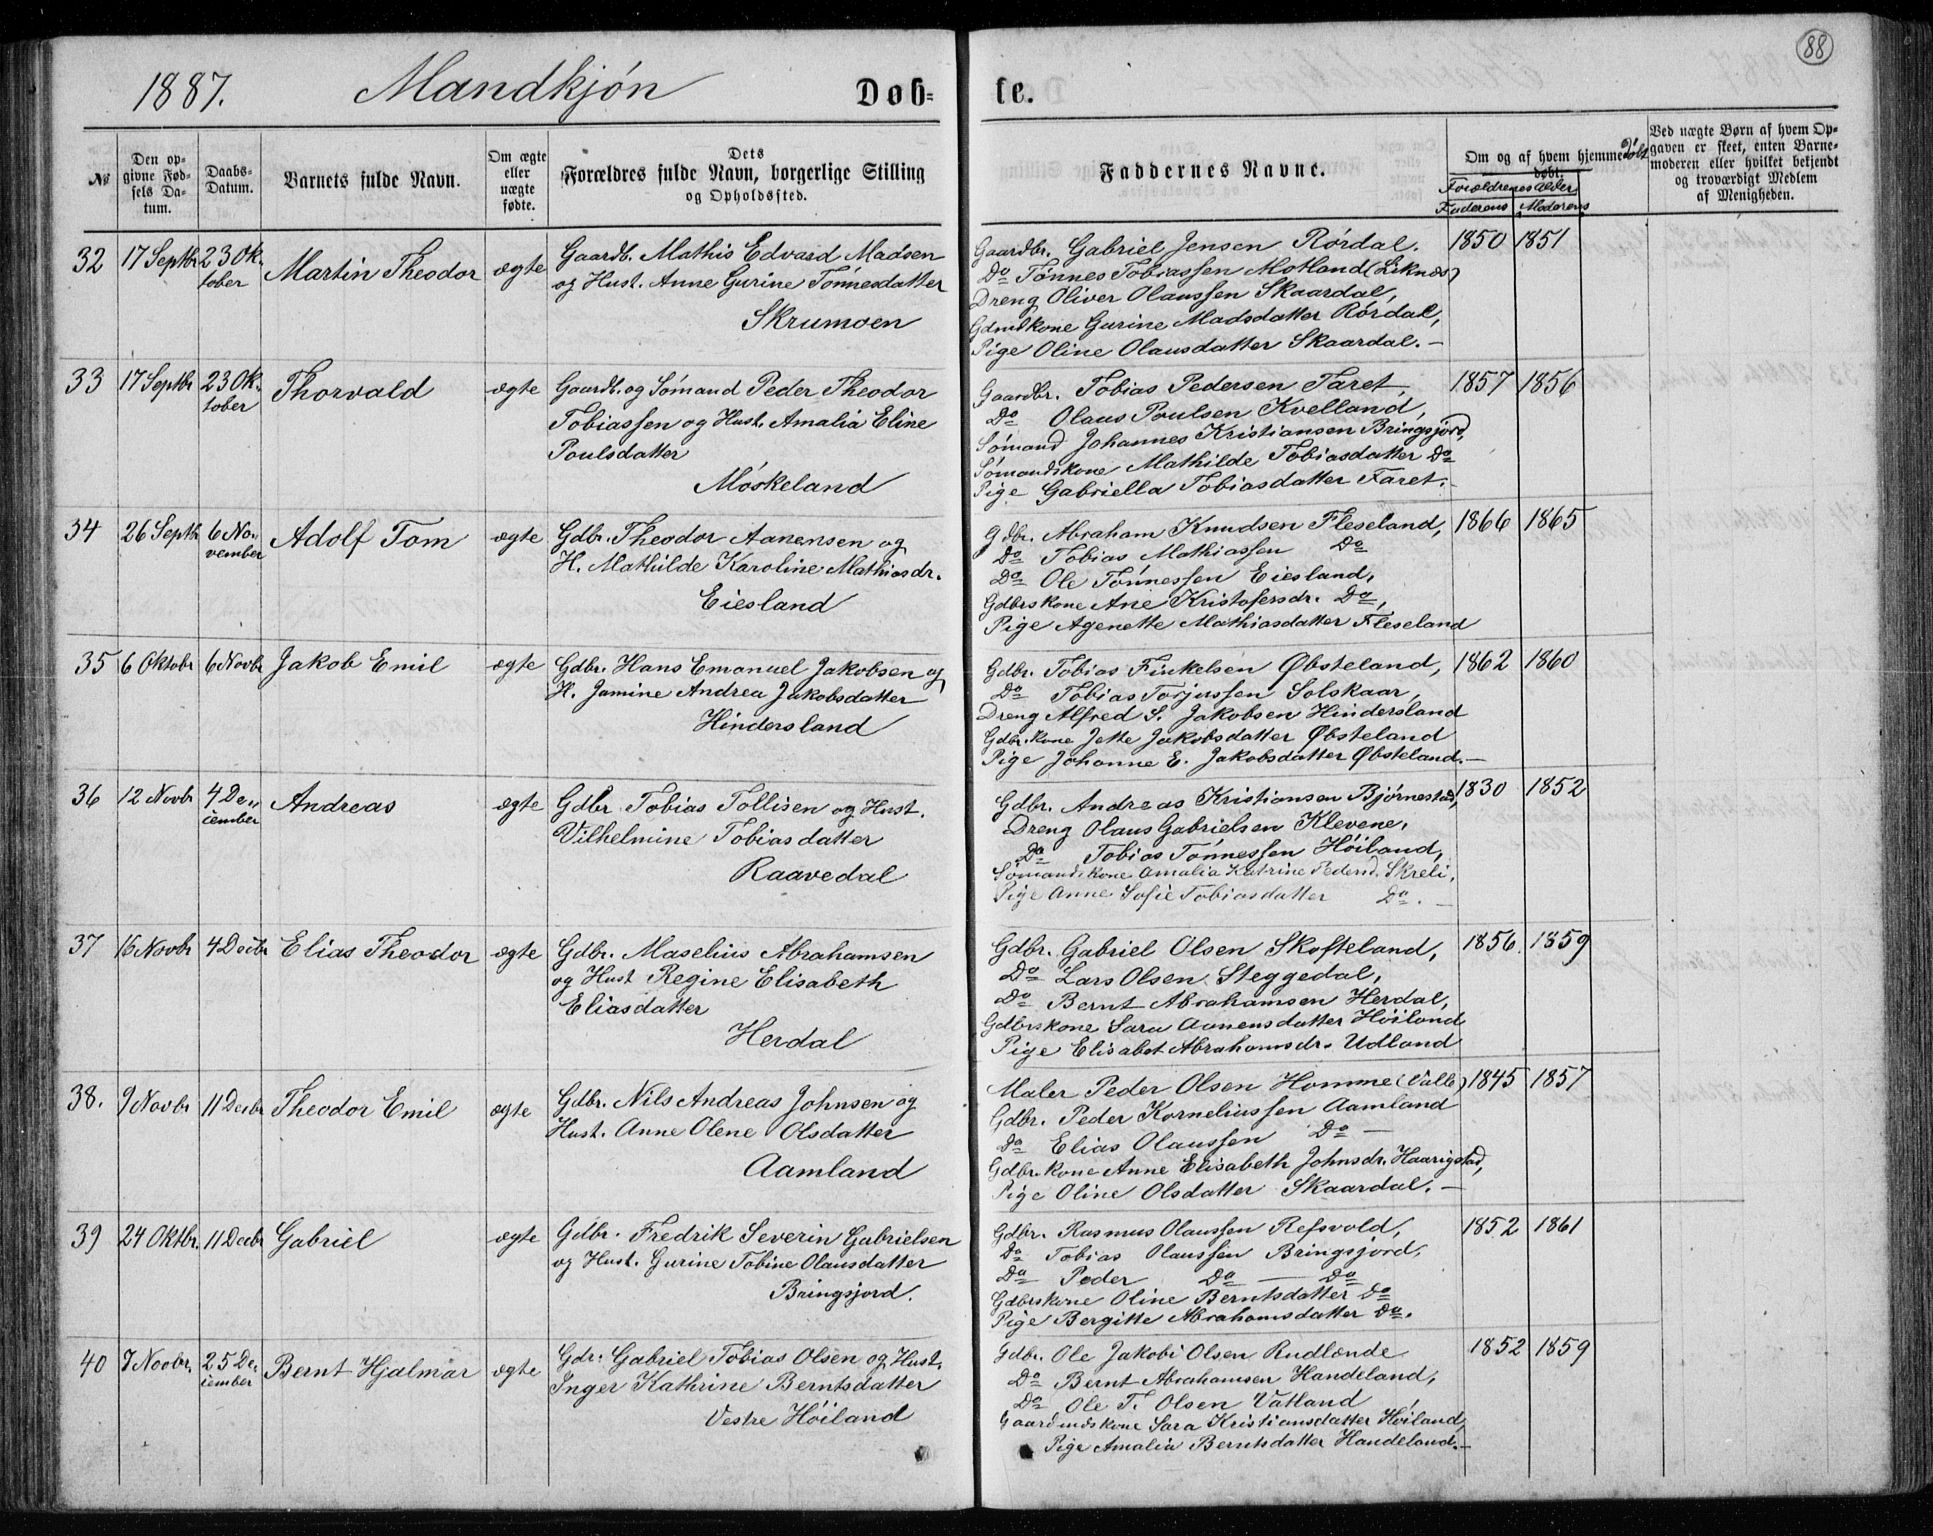 88
1887. Mandkjön Døb= te.
№
Den op=
givne Fød=
sels Da=
tum.
Daabs=
Datum.
Barnets fulde Navn.
Om ægte
eller
uægte
fødte.
Dets
Forældres fulde Navn, borgerlige Stilling
og Opholdssted.
Faddernes Navne.
Om og af hvem hjemmedøbt
døbt.
Forældrenes alder
Faderens Moderens
Ved uægte Børn af hvem Op=
gaven er skeet, enten Barne=
moderen eller hvilket bekjendt
og troværdigt Medlem
af Menigheden.
32 17 Septbr 23 Ok-
tober Martin Theodor ægte
Gaardb. Mathis Edvard Madsen
og Hust. Anne Gurine Tönnesdatter
Skrumoen
Gaardbr. Gabriel Jensen Rördal.
Do Tönnes Tobiassen Motland (Liknes)
Dreng Oliver Olaussen Skaardal,
Gdmdkone Gurine Madsdatter Rördal,
Pige Oline Olausdatter Skaardal.-
1850 1851
33 17 Septbr 23 Ok-
tober Thorvald ægte
Gaardb. og Sömand Peder Theodor
Tobiassen og Hust. Amalia Eline
Poulsdatter
Möskeland
Gaardbr. Tobias Pedersen Faret,
Do Olaus Poulsen Kvelland,
Sömand Johannes Kristiansen Bringsjord,
Sömandskone Mathilde Tobiasdatter Do
Pige Gabriella Tobiasdatter Faret.-
1857 1856
34 26 Septbr 6 No-
vember Adolf Tom ægte
Gdbr. Theodor Aanensen og
H. Mathilde Karoline Mathiasdr.
Eiesland
Gdbr. Abraham Knudsen Fleseland,
Do Tobias Mathiassen Do
Do Ole Tönnessen Eiesland,
Gdbrskone Ane Kristofersdr. Do,
Pige Agenette Mathiasdatter Fleseland
1866 1865
35 6 Oktobr 6 Novbr Jakob Emil ægte
Gdbr. Hans Emanuel Jakobsen og
H. Jamine Andrea Jakobsdatter
Hindersland
Gdbr. Tobias Finkelsen Øbsteland,
Do Tobias Torjussen Solskaar,
Dreng Alfred S. Jakobsen Hindersland
Gdbr.kone Jette Jakobsdatter Øbsteland
Pige Johanne E. Jakobsdatter Øbsteland.-
1862 1860
36 12 Novbr 4 De-
cember Andreas ægte
Gdbr Tobias Tollisen og Hust.
Vilhelmine Tobiasdatter
Raavedal
Gdbr. Andreas Kristiansen Björnestad,
Dreng Olaus Gabrielsen Klevene,
Do Tobias Tönnessen Höiland,
Sömandskone Amalia Katrine Pedersd. Skreli,
Pige Anne Sofie Tobiasdatter Do.-
1830 1852
37 16 Novbr 4 Decbr Elias Theodor ægte
Gdbr. Maselius Abrahamsen
og Hust Regine Elisabeth
Eliasdatter
Herdal
Gdbr. Gabriel Olsen Skofteland,
Do Lars Olsen Steggedal,
Do Bernt Abrahamsen Herdal,
Gdbrskone Sara Aanensdatter Höiland
Pige Elisabet Abrahamsdr. Udland
1856. 1859
38. 9 Novbr 11 Decbr Theodor Emil ægte
Gdbr. Nils Andreas Johnsen og
Hust. Anne Olene Olsdatter
Aamland
Maler Peder Olsen Homme (Valle)
Gdbr. Peder Korneliussen Aamland
Do Elias Olaussen Do -
Gdbr.kone Anne Elisabeth Johnsdr. Haarigstad,
Pige Oline Olsdatter Skaardal.-
1845 1857
39 24 Oktbr. 11 Decbr Gabriel ægte
Gdbr. Fredrik Severin Gabrielsen
og Hust. Gurine Tobine Olausdatter
Bringsjord.
Gdbr. Rasmus Olaussen Refsvold,
Do Tobias Olaussen Bringsjord,
Do Peder Do - Do
Gdbrskone Oline Berntsdatter Do
Pige Bergitte Abrahamsdatter Do.
1852 1861
40 7 Novbr. 25 De-
cember Bernt Hjalmar ægte
Gdr. Gabriel Tobias Olsen og Hust.
Inger Kathrine Berntsdatter
Vestre Höiland
Gdbr. Ole Jakobi Olsen Rudlænde
Do Bernt Abrahamsen Handeland,
Do Ole T. Olsen Vatland,
Gaardmdskone Sara Kristiansdatter Höiland,
Pige Amalia Berntsdatter Handeland.-
1852 1859